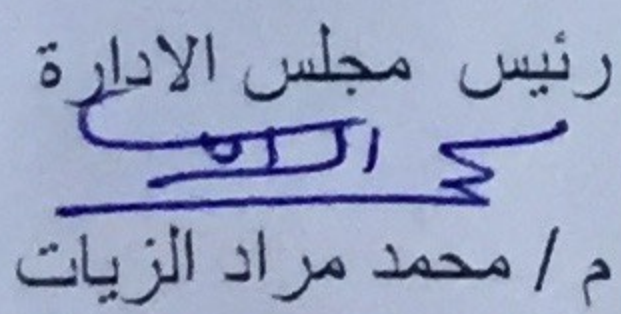 رئيس مجلس الادارة
م / محمد مراد الزيات